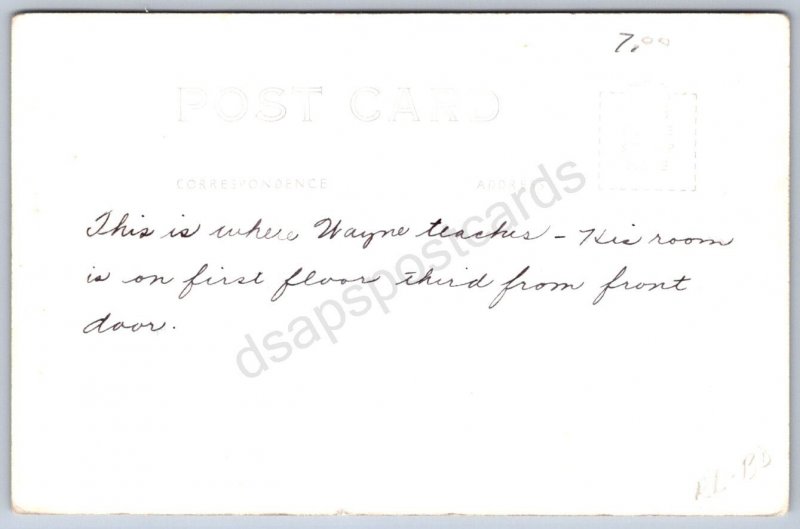 7.00
POST CARD
CORRESPONDENCE ADDRESS
This is where Wayne teaches – His room
is on first floor third from front
door.
dsapspostcards